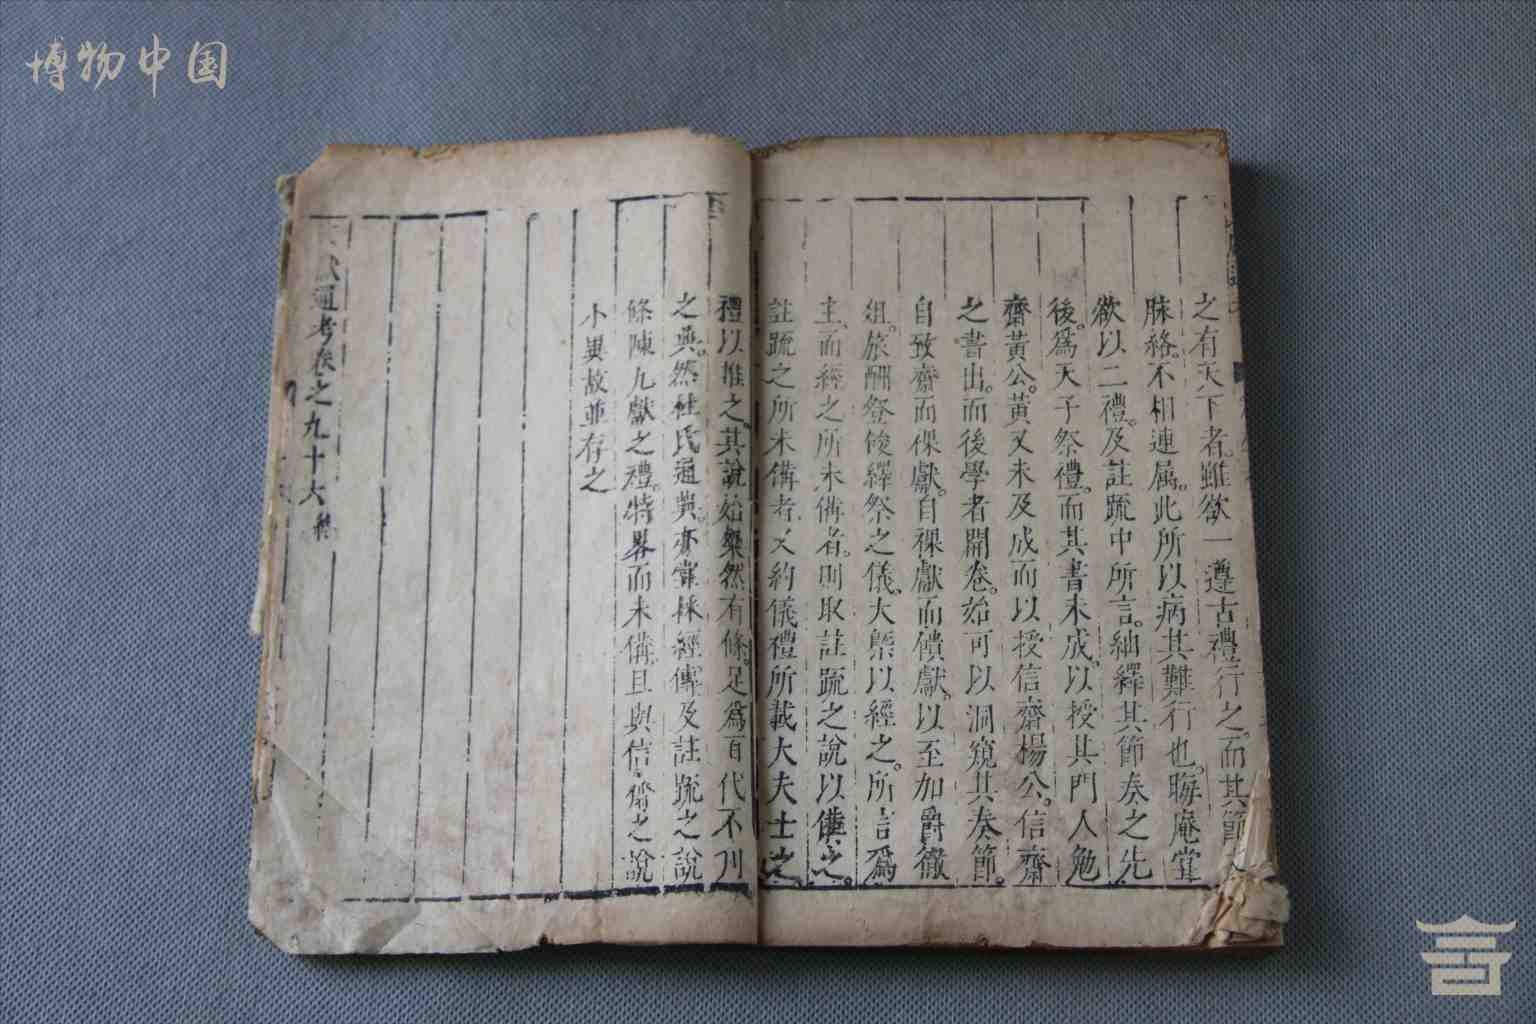 博物中国
之有天下者。雖欲一遵古禮行之。而其節
脉絡。不相連属。此所以病其難行也。晦庵嘗
欲以二禮。及註疏中所言。紬繹其節奏之先
後。爲天子祭禮。而其書未成。以授其門人勉
齋黃公。黃又未及成而以授信齋楊公。信齋
之書出。而後學者開卷。始可以洞窺其奏節。
自致齋而祼獻。自祼獻而饋獻。以至加爵徹
俎。旅酬祭餕繹祭之儀。大槩以經之。所言爲
主。而經之所未備者。則取註疏之說以備之。
註疏之所未備者又約儀禮所載大夫士之
禮以推之。其說始粲然有條。足爲百代不刋
之典。然杜氏通典。亦嘗採經傳及註疏之說
條陳九獻之禮。特畧而未備。且與信齋之說
小異故並存之
通考卷之九十六終